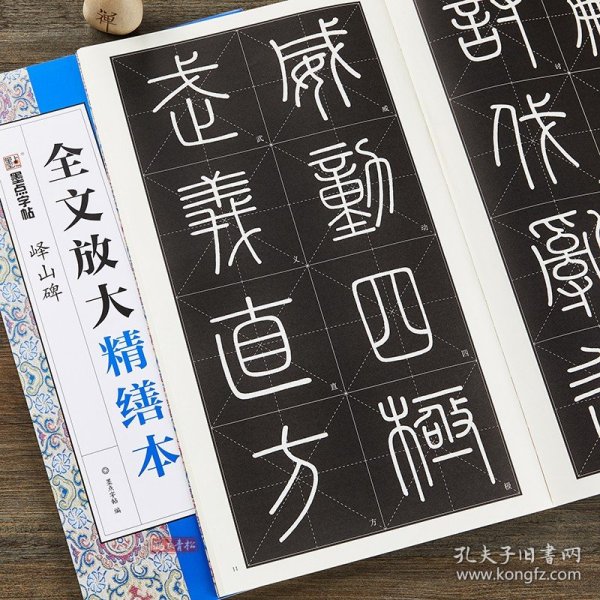 墨点字帖
峄山碑
全文放大精缮本
墨点字帖 编
禅
威動四極
威
动
四
极
武義直方
武
义
直
方
11
討伐亂
讨
孔夫子旧书网
www.kongfz.com